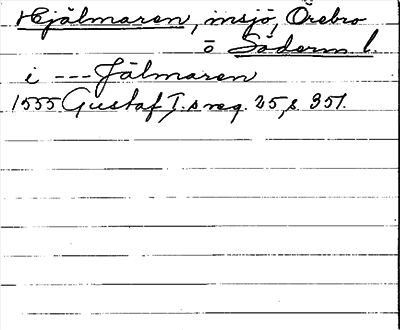 Hjälmaren, insjö, Örebro
o Söderm l.
i --- Jälmaren
1555 Gustaf I.s reg. 25, s. 351.